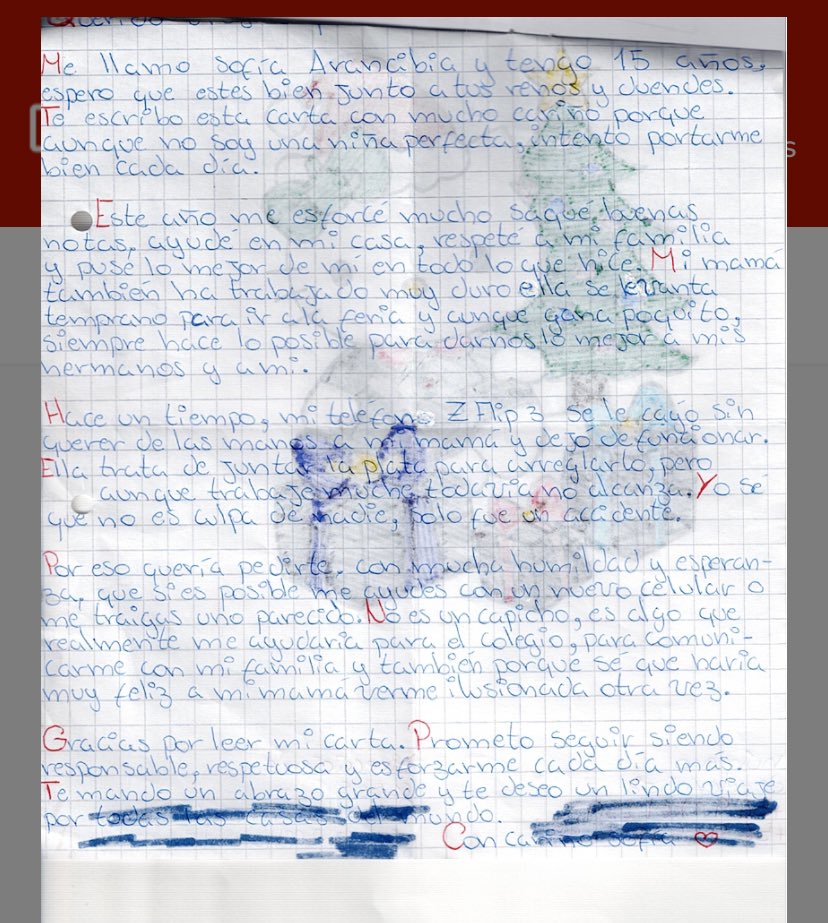 Querido
Me llamo sofía Arancibia y tengo 15 años,
espero que estes bien junto a tus renos y duendes.
Te escribo esta carta con mucho cariño porque
aunque no soy una niña perfecta, intento portarme
bien cada día.
s
Este año me esforcé mucho saqué buenas
notas, ayudé en mi casa, respeté a mi familia
y puse lo mejor de mí en todo lo que hice. Mi mamá
también ha trabajado muy duro ella se levanta
temprano para ir a la feria y aunque gana poquito,
siempre hace lo posible para darnos lo mejor a mis
hermanos y a mi.
Hace un tiempo, mi teléfono Z Flip 3 se le cayó sin
querer de las manos a mi mamá y dejo de funcionar.
Ella trata de juntar la plata para arreglarlo, pero
aunque trabaja mucho todavía no alcanza. Yo se
que no es culpa de nadie, solo fue un accidente.
Por eso quería pedirte, con mucha humildad y esperan-
za, que si es posible me ayudes con un nuevo celular o
me traigas uno parecido. No es un capicho, es algo que
realmente me ayudaria para el colegio, para comuni-
carme con mi familia y también porque sé que haria
muy feliz a mi mamá verme ilusionada otra vez.
Gracias por leer mi carta. Prometo seguir siendo
responsable, respetuosa y esforzarme cada día más.
Te mando un abrazo grande y te deseo un lindo viaje
por todas las casas del mundo.
Con cariño sofía